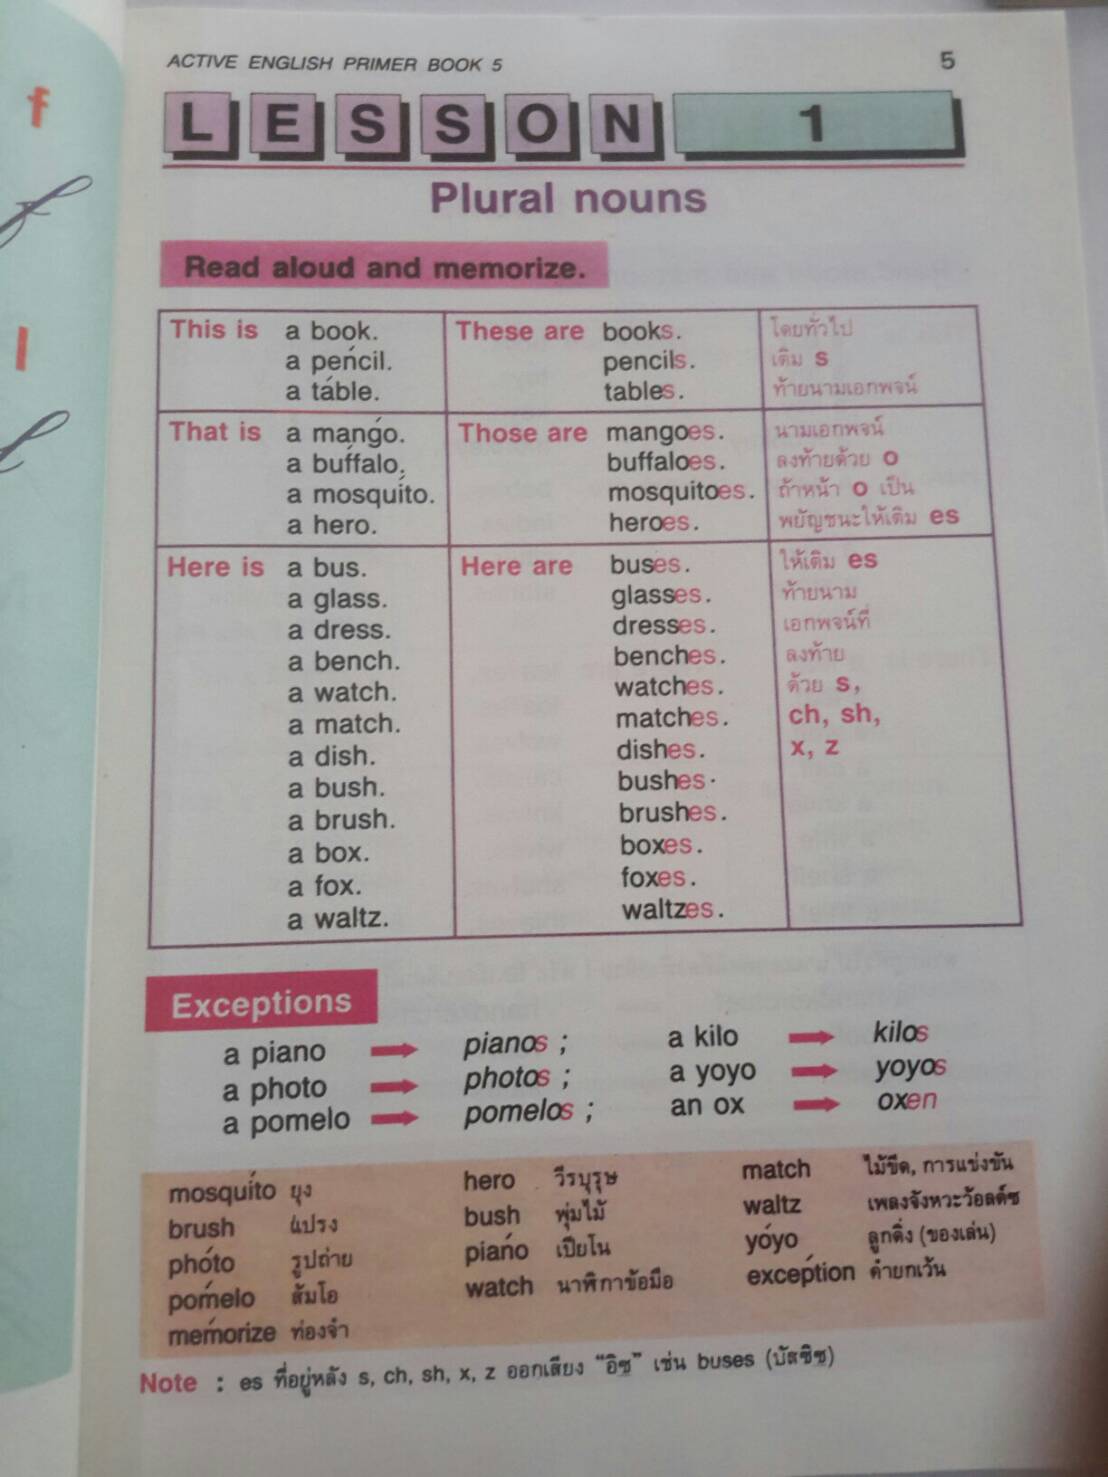 f
f
l
l
ACTIVE ENGLISH PRIMER BOOK 5 5
LESSON 1
Plural nouns
Read aloud and memorize.
This is a book. These are books. โดยทั่วไป
a péncil. pencils. เติม s
a táble. tables. ท้ายนามเอกพจน์
That is a mángo. Those are mangoes. นามเอกพจน์
a búffalo. buffaloes. ลงท้ายด้วย o
a mosquíto. mosquitoes. ถ้าหน้า o เป็น
a hero. heroes. พยัญชนะให้เติม es
Here is a bus. Here are buses. ให้เติม es
a glass. glasses. ท้ายนาม
a dress. dresses. เอกพจน์ที่
a bench. benches. ลงท้าย
a watch. watches. ด้วย s,
a match. matches. ch, sh,
a dish. dishes. x, z
a bush. bushes.
a brush. brushes.
a box. boxes.
a fox. foxes.
a waltz. waltzes.
Exceptions
a piano → pianos ; a kilo → kilos
a photo → photos ; a yoyo → yoyos
a pomelo → pomelos ; an ox → oxen
mosquíto ยุง hero วีรบุรุษ match ไม้ขีด, การแข่งขัน
brush แปรง bush พุ่มไม้ waltz เพลงจังหวะว้อลต์ซ
phóto รูปถ่าย piáno เปียโน yóyo ลูกดิ่ง (ของเล่น)
pómelo ส้มโอ watch นาฬิกาข้อมือ excéption คำยกเว้น
mémorize ท่องจำ
Note : es ที่อยู่หลัง s, ch, sh, x, z ออกเสียง "อิซ" เช่น buses (บัสซิซ)